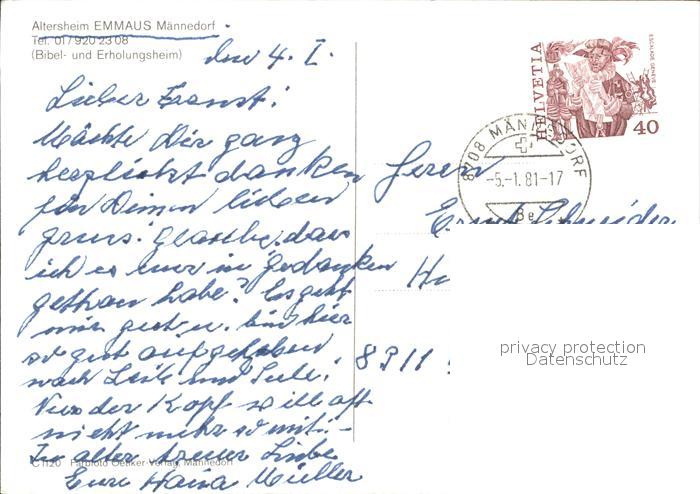 Altersheim EMMAUS Männedorf
Tel. 01 / 920 23 08
(Bibel- und Erholungsheim)
den 4. I.
Lieber Ernst!
Möchte Dir ganz
herzlichst danken
für Deinen lieben
gruss. glaubte, dass
ich es nur in gedanken
gethan habe? Es geht
mir gut u. bin hier
so gut aufgehoben
nach Leib und Seele.
Nur der Kopf will oft
nicht mehr so mit!-
In alter treuer Liebe
Eure Hanna Müller
C 1120 Farbfoto Oetiker-Verlag, Männedorf
HELVETIA
ESCALADE GENÈVE
40
8708 MÄNNEDORF
-5.-1.81-17
Herrn
Ernst Schneider
8911
privacy protection
Datenschutz